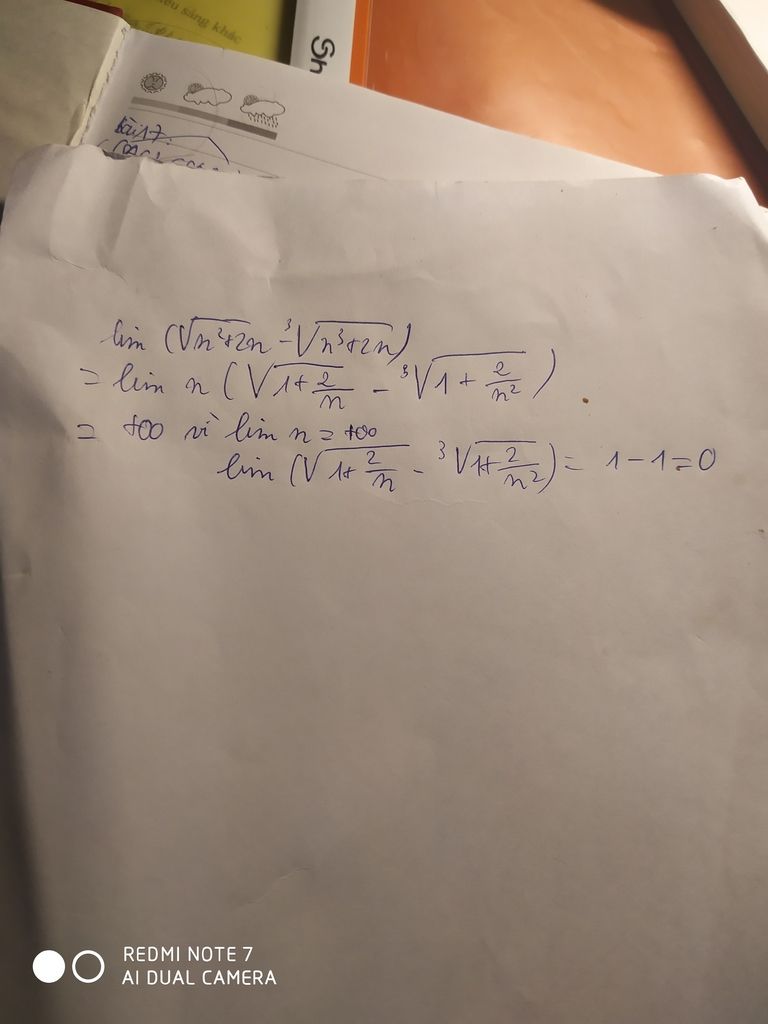 ều sáng khác
Sh
Bài 17:
lim (√n²+2n - ³√n³+2n)
= lim n (√1+2/n - ³√1+2/n²)
= +∞ vì lim n = +∞
lim (√1+2/n - ³√1+2/n²) = 1-1=0
REDMI NOTE 7
AI DUAL CAMERA